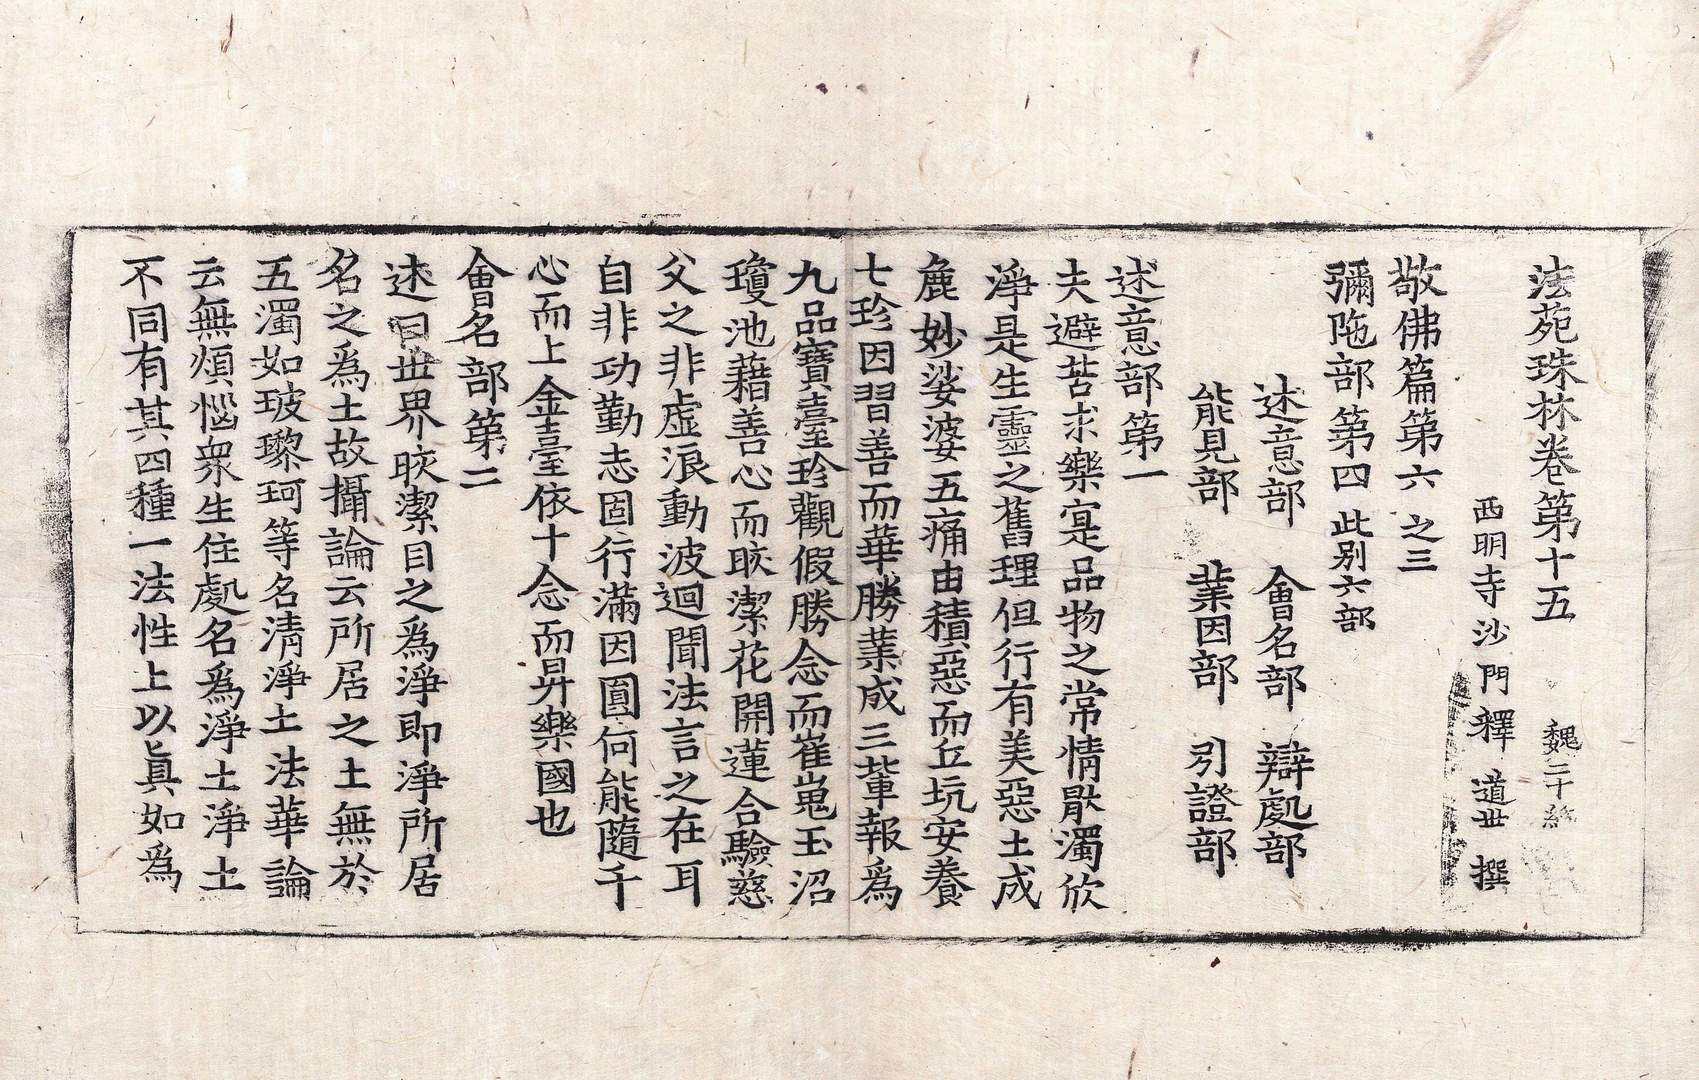 法苑珠林卷第十五 魏二十
西明寺沙門釋道世撰
敬佛篇第六之三
彌陁部第四此别六部
述意部 會名部 辯處部
能見部 業因部 引證部
述意部第一
夫避苦求樂寔是品物之常情猒濁欣
淨是生靈之舊理但行有美惡土成
麁妙娑婆五痛由積惡而丘坑安養
七珍因習善而華勝業成三輩報爲
九品寶臺珍觀假勝念而崔嵬玉沼
瓊池藉善心而皎潔花開蓮合驗慈
父之非虛浪動波迴聞法言之在耳
自非功勤志固行滿因圓何能隨千
心而上金臺依十念而昇樂國也
會名部第二
述曰世界皎潔目之爲淨即淨所居
名之爲土故攝論云所居之土無於
五濁如玻瓈珂等名清淨土法華論
云無煩惱衆生住處名爲淨土淨土
不同有其四種一法性土以眞如爲